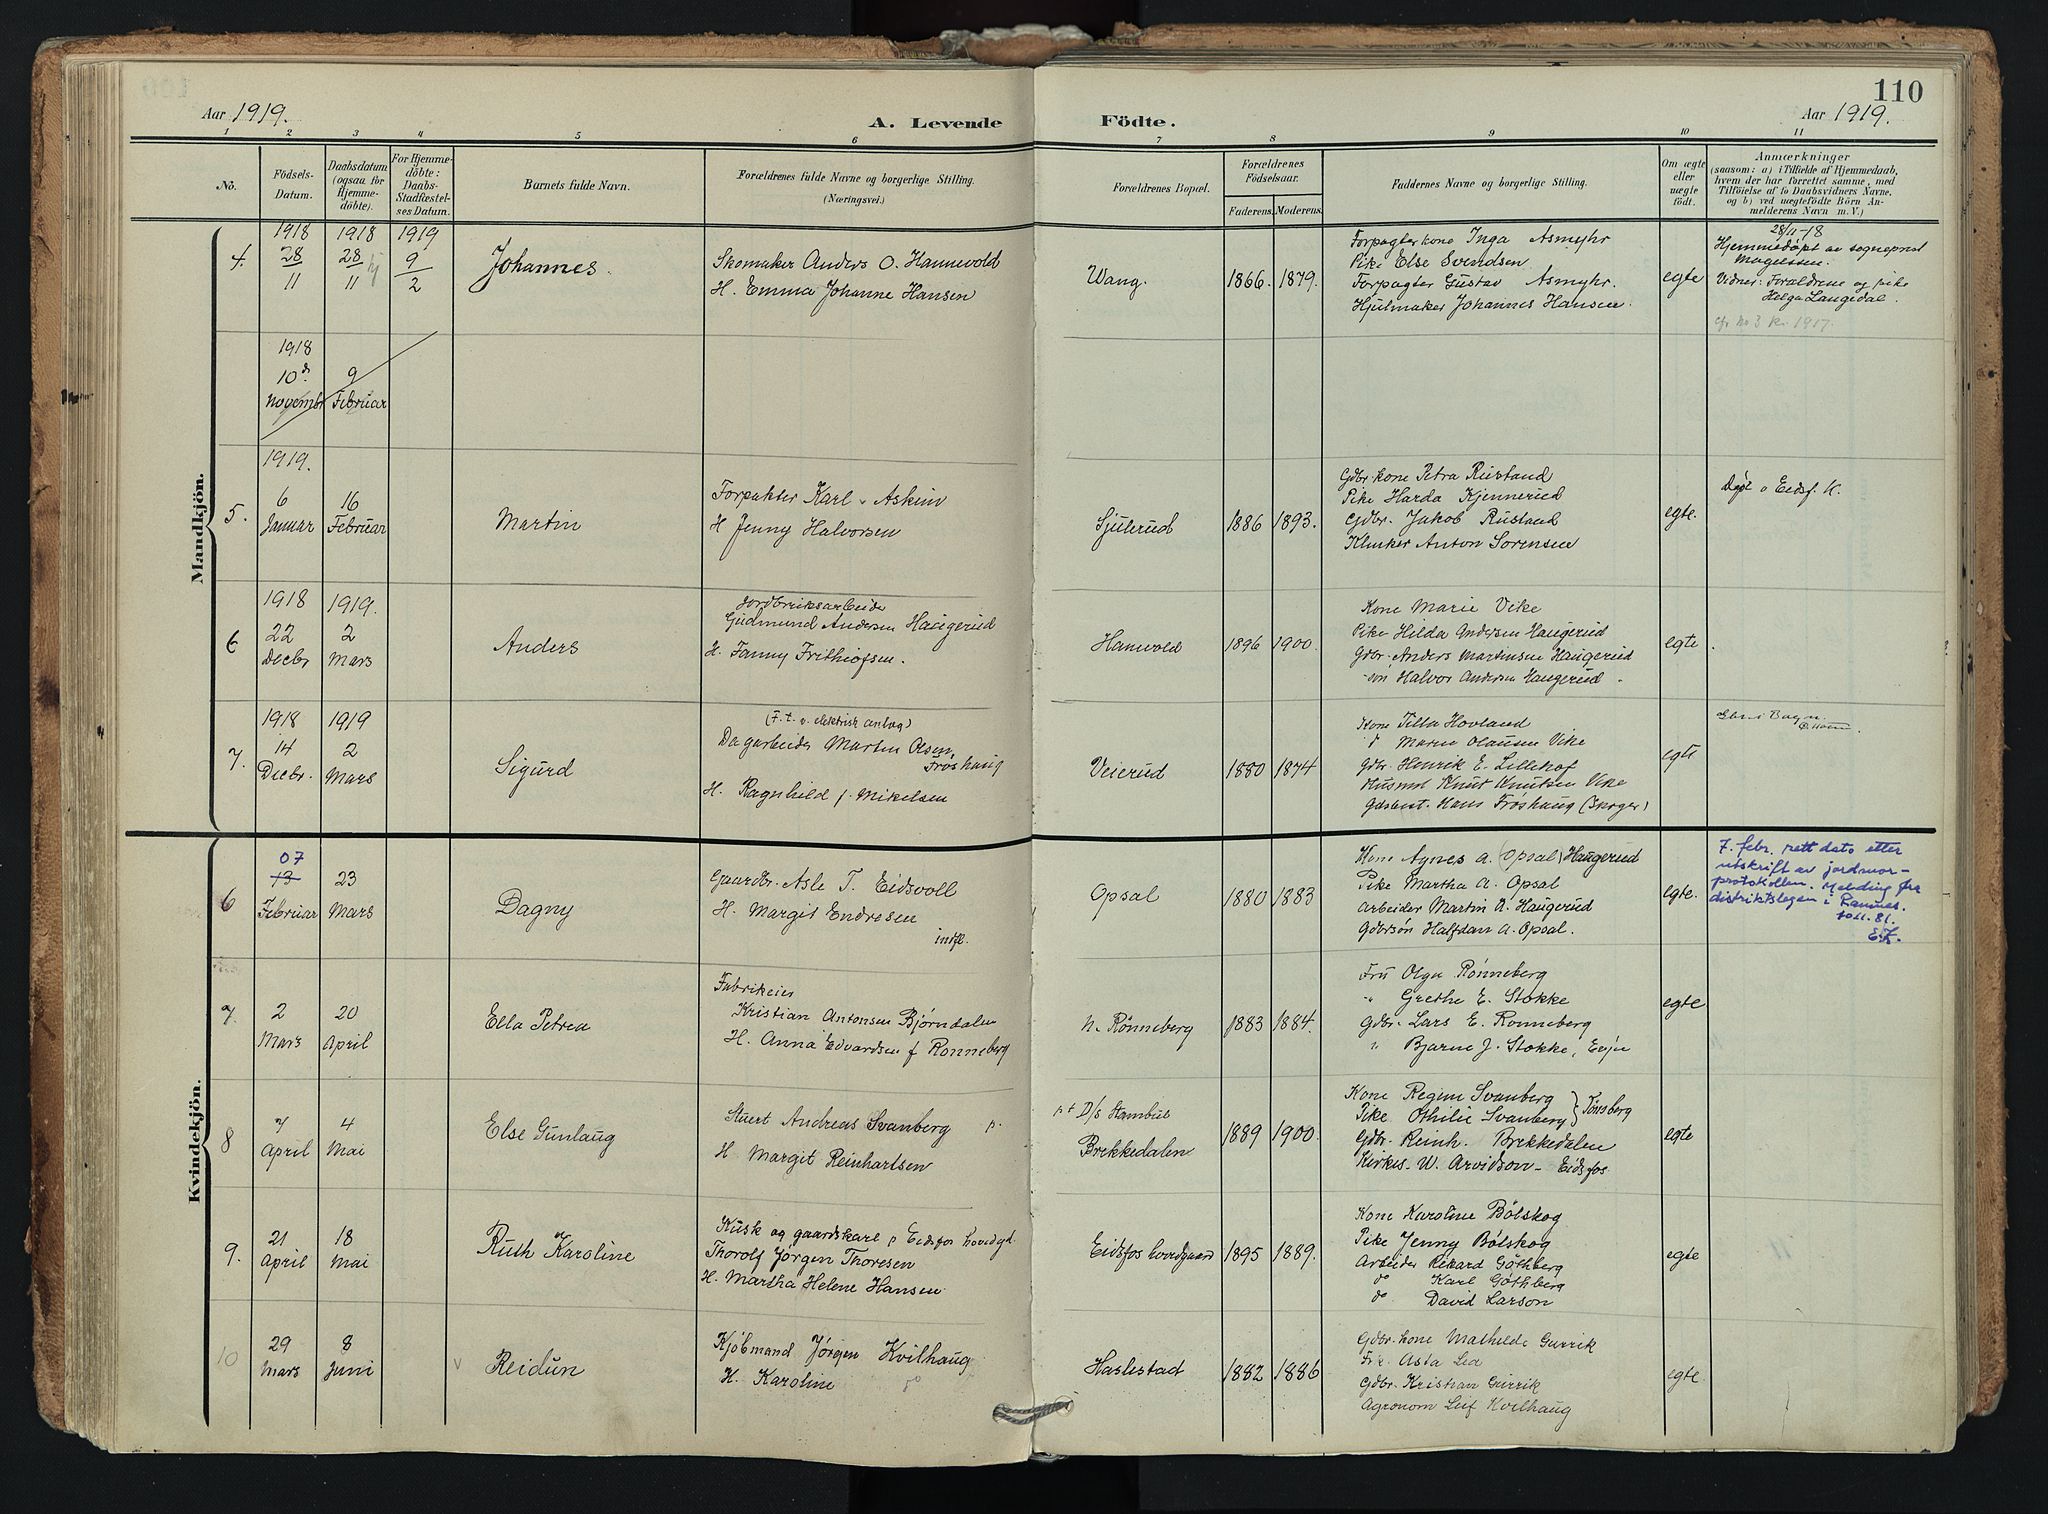 Aar 1919.
A. Levende Födte.
Aar 1919.
110
1 2 3 4 5 6 7 8 9 10 11
No.
Födsels-
Datum.
Daabsdatum
(ogsaa for
Hjemme-
döbte).
For Hjemme-
döbte:
Daabs-
Stadfæstel-
ses Datum.
Barnets fulde Navn.
Forældrenes fulde Navne og borgerlige Stilling.
(Næringsvei.)
Forældrenes Bopæl.
Forældrenes
Födselsaar.
Faderens. Moderens.
Faddernes Navne og borgerlige Stilling.
Om ægte
eller
uægte
født.
Anmærkninger
(saasom: a) i Tilfælde af Hjemmedaab,
hvem der har forrettet samme, med
Tilföielse af to Daabsvidners Navne,
og b) ved uægtefödte Börn An-
melderens Navn m. V.)
Mandkjön.
4.
1918
28
11
1918
28
11
hj
1919
9
2
Johannes.
Skomaker Anders O. Hannevold
H. Emma Johanne Hansen
Wang.
1866. 1879.
Forpagterkone Inga Asmyhr
Pike Else Svendsen
Forpagter Gustav Asmyhr.
Hjulmaker Johannes Hansen.
egte
28/11-18
Hjemmedøpt av sogneprest
Magelssen.
Vidner: Foreldrene og pike
Helga Langedal.
cfr. No 3 kv. 1917.
1918
10de
Novembr
9
Februar
1919.
5.
6
Januar
16
Februar
Martin
Forpakter Karl Askim
H Jenny Halvorsen
Sjulerud
1886 1893.
Gdbr kone Petra Rustand
Pike Harda Kjennerud
Gdbr. Jakob Rustand
Klinker Anton Sørensen
egte.
Døpt i Eidsf. K.
6
1918
22
Decbr
1919.
2
Mars
Anders
Jordbruksarbeide
Gudmund Andersen Haugerud
H. Fanny Frithiofsen.
Hanevold
1896 1900.
Kone Marie Vike
Pike Hilda Andersen Haugerud
Gdbr. Anders Martinsen Haugerud
søn Halvor Andersen Haugerud.
egte.
7.
1918
14
Decbr.
1919
2
Mars
Sigurd
(F. t. v. elektrisk anlæg)
Dagarbeider Martin Olsen
Frøshaug
H. Ragnhild f. Mikelsen
Veierud
1880 1874
Kone Tilla Hovland
do Marie Olausen Vike
Gdbr. Henrik E. Lillehof
Husmd Knut Knutsen Vike
Gaardbest. Hans Frøshaug (Skoger)
egte
Kvindekjön.
6
07
13
Februar
23
Mars
Dagny
Gaardbr. Asle T. Eidsvoll
H. Margit Endresen
indfl.
Opsal
1880 1883
Kone Agnes A. (Opsal) Haugerud
Pike Martha A. Opsal
Arbeider Martin A. Haugerud
Gdbrsøn Halfdan A. Opsal.
egte.
7. febr. rett dato etter
utskrift av jordmor-
protokollen. Melding fra
distriktslegen i Ramnes.
E.K.
7.
2
Mars
20
April
Ella Petrea
Fabrikeier
Kristian Antonsen Bjørndalen
H. Anna Edvardsen f Rønneberg
N. Rønneberg
1883 1884.
Fru Olga Rønneberg
" Grethe E. Stokke
Gdbr. Lars E. Ronneberg
" Bjarne J. Stokke,
egte
8
7
April
4
Mai
Else Gunlaug
Stuert Andreas Svanberg p.
H Margit Reinhartsen
pt D/s Stambul
Brekkedalen
1889 1900.
Kone Regine Svanberg
Pike Othilie Svanberg } Tønsberg
Gdbr. Reinh. Brekkedalen
Kirkes. W. Arvidson - Eidsfos
egte
9.
21
April
18
Mai
Ruth Karoline
og
Kusk og gaardskarl p Eidsfos hovedgd
Thorolf Jørgen Thoresen
H. Martha Helene Hansen.
Eidsfos hovedgaard
1895 1889.
Kone Karoline Bölskog
Pike Jenny Bölskog
Arbeider Rikard Göthberg
do Karl Göthberg
do David Larson
egte
10
29
Mars
8
Juni
v Reidun
Kjøbmand Jørgen Kvilhaug
H. Karoline do
Haslestad
1882 1886
Gdbr. kone Mathilde Gurrik
Frk. Asta Lea
Gdbr. Kristian Gurrik
Agronom Leif Kvilhaug
egte.